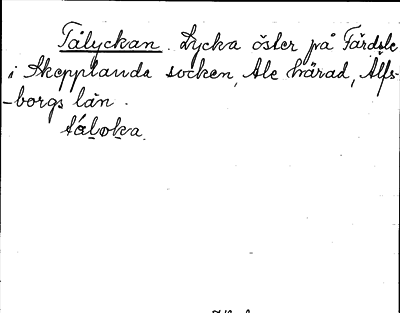 Tålyckan. Lycka öster på Färdsle
i Skepplanda socken, Ale härad, Älfs-
-borgs län.
tálωka.